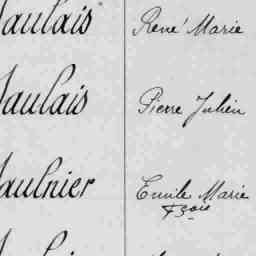 aulais René Marie
aulais Pierre Julien
aulnier Emile Marie
Fçois